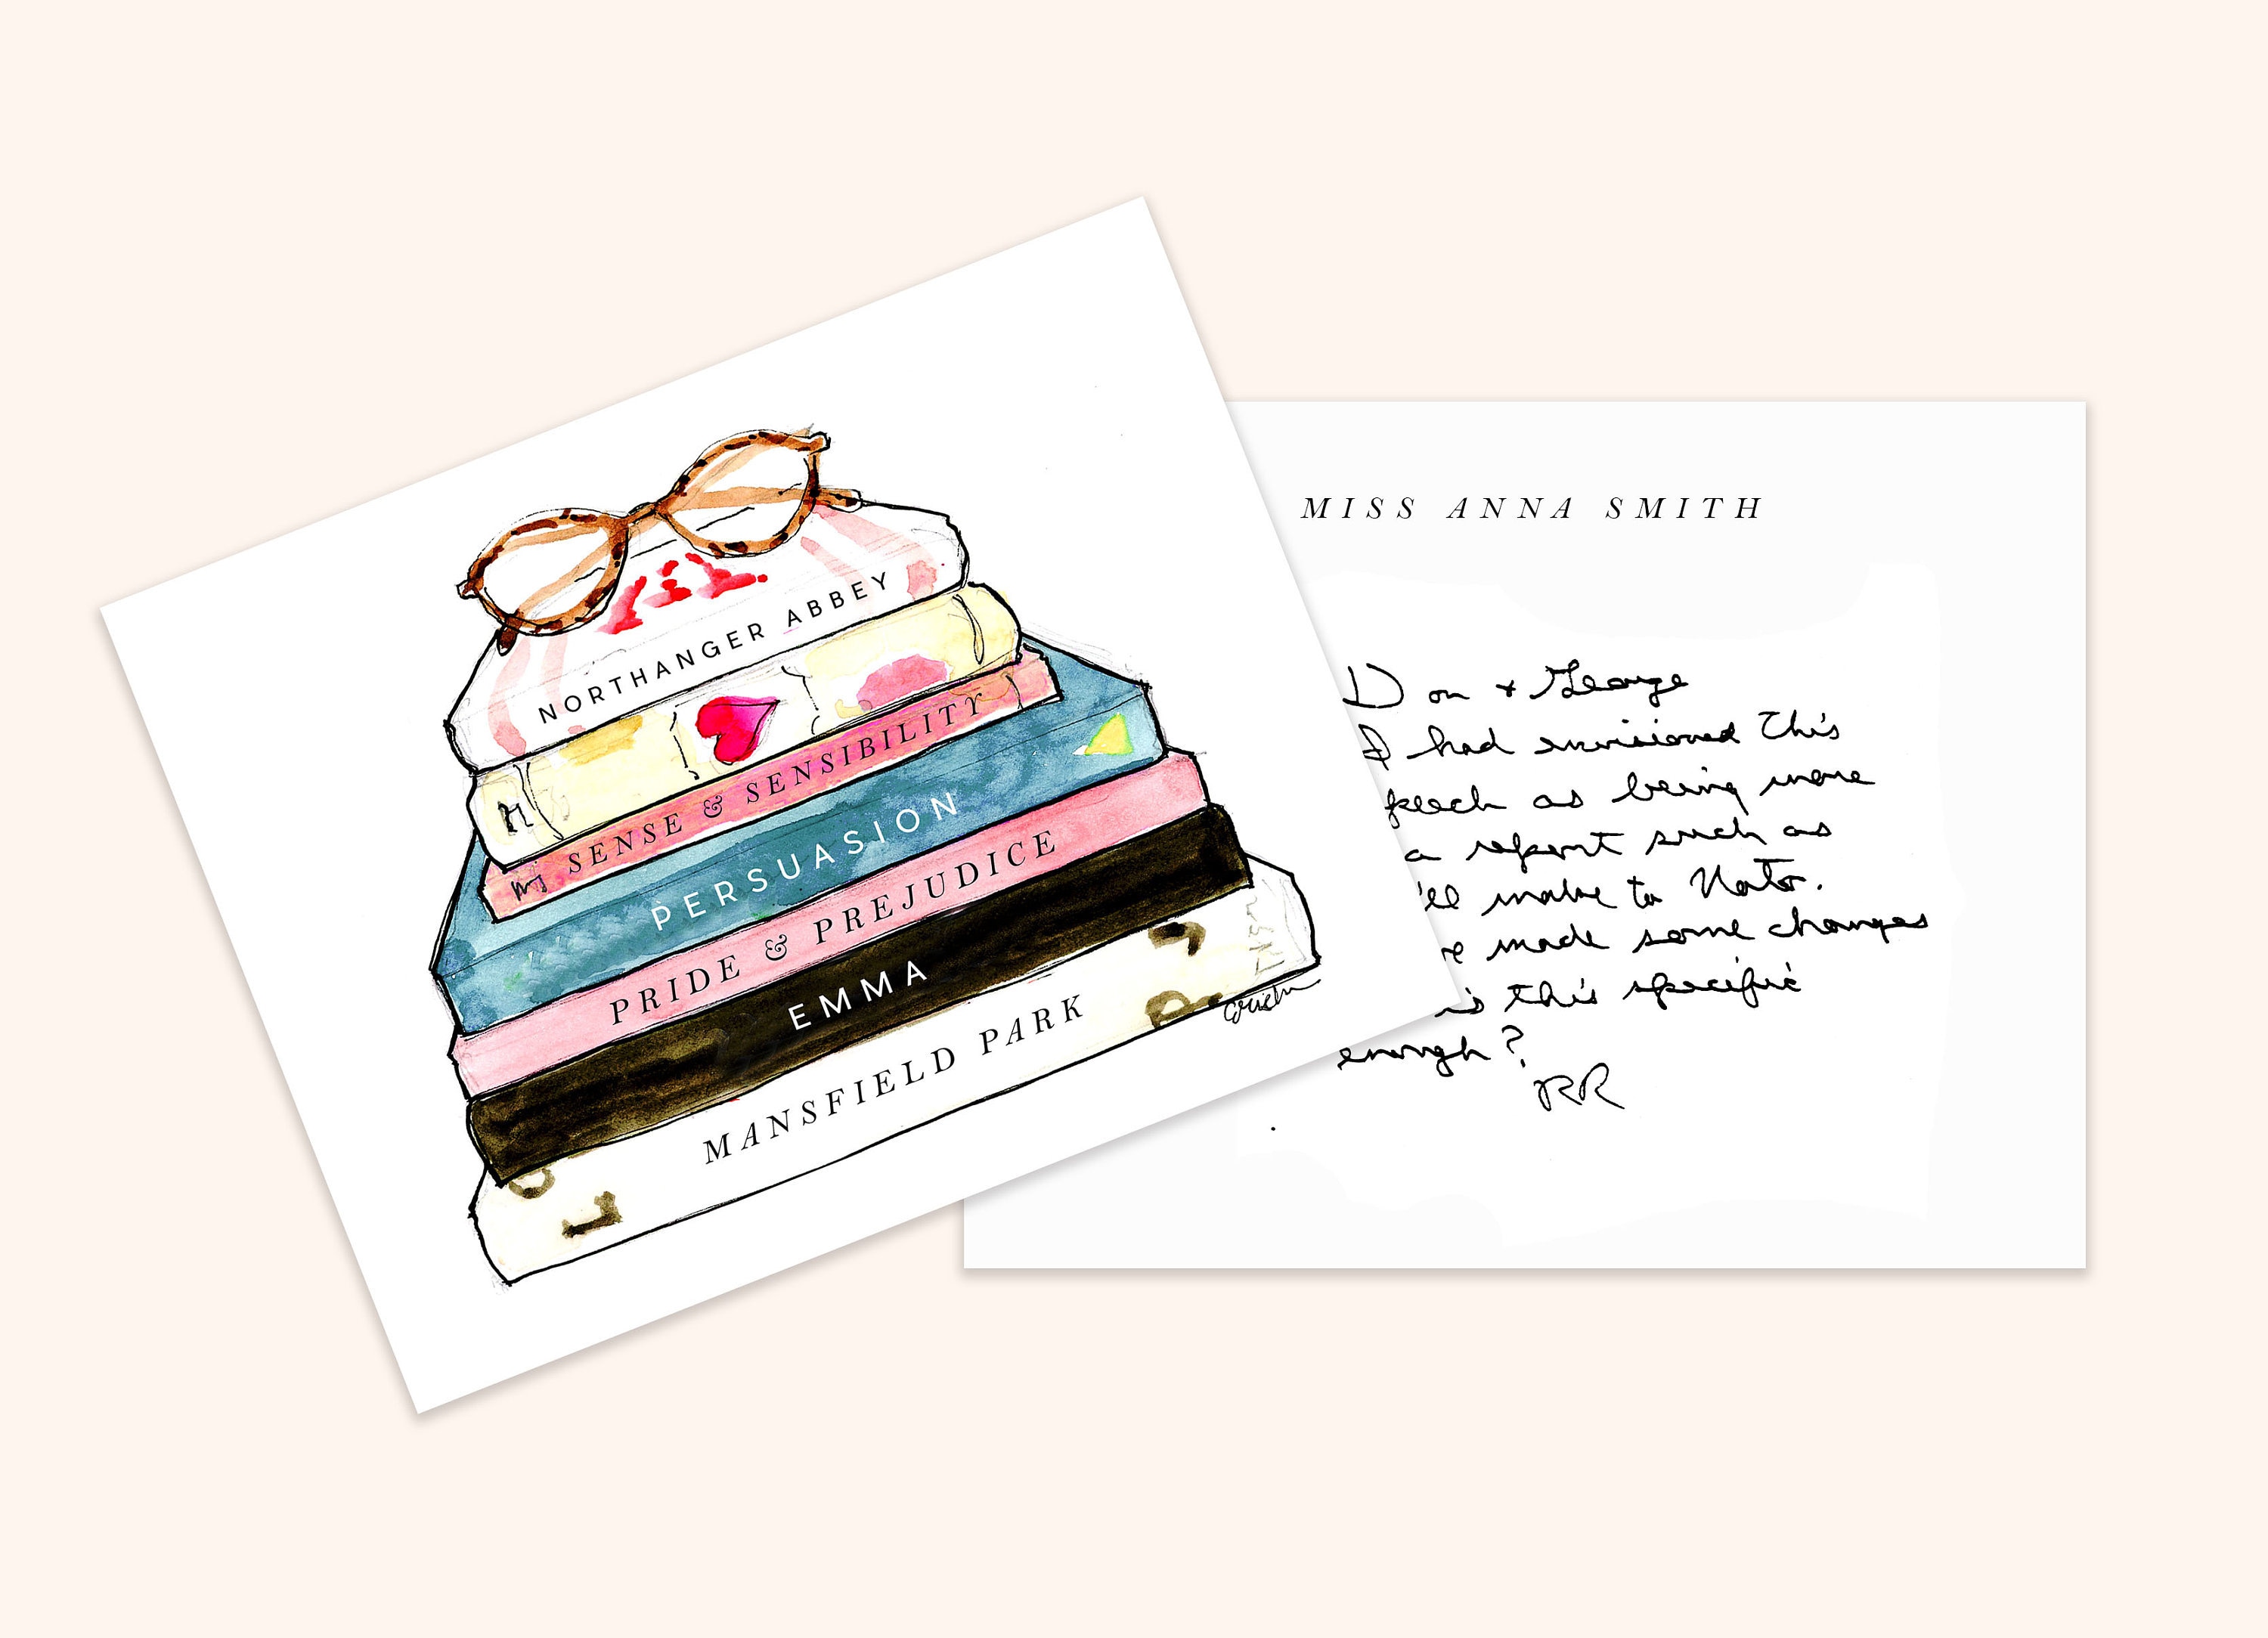 NORTHANGER ABBEY
SENSE & SENSIBILITY
PERSUASION
PRIDE & PREJUDICE
EMMA
MANSFIELD PARK
MISS ANNA SMITH
Don & George
I had envisioned this
peech as being more
a report such as
'll make to Nato.
ve made some changes
is this specific
enough?
RR